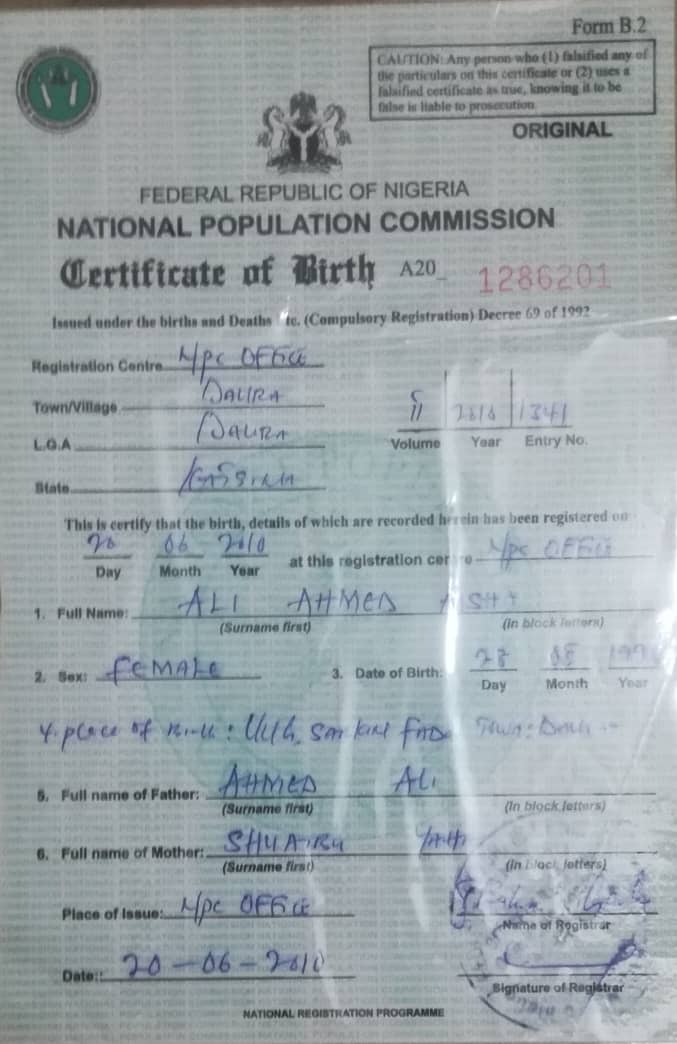 Form B.2
CAUTION: Any person who (1) falsified any of
the particulars on this certificate or (2) uses a
falsified certificate as true, knowing it to be
false is liable to prosecution
ORIGINAL
FEDERAL REPUBLIC OF NIGERIA
NATIONAL POPULATION COMMISSION
Certificate of Birth A20_ 1286201
Issued under the births and Deaths tc. (Compulsory Registration) Decree 69 of 1992
Registration Centre NPC OFFICE
Town/Village DAURA
L.G.A DAURA
2010 1341
Volume Year Entry No.
State KATSINA
This is certify that the birth, details of which are recorded herein has been registered on
20 06 2010 at this registration centre NPC OFFICE
Day Month Year
1. Full Name: ALI AHMED
(Surname first) (In block letters)
2. Sex: FEMALE 3. Date of Birth: 28 08
Day Month Year
4. place of Birth:
5. Full name of Father: AHMED ALI
(Surname first) (In block letters)
6. Full name of Mother: SHUAIBU
(Surname first) (In block letters)
Place of Issue: NPC OFFICE
Name of Registrar
Date:: 20-06-2010
Signature of Registrar
NATIONAL REGISTRATION PROGRAMME